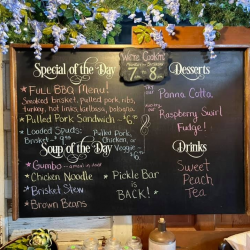 We're Cookin'!
7 - 8
Special of the Day
* FULL BBQ Menu!
Smoked brisket, pulled pork, ribs,
turkey, hot links, kielbasa,
* Pulled Pork Sandwich - $6
* Loaded Spuds:
Brisket
Pulled Pork,
Chicken, or
Veggie
Soup of the Day
* Gumbo
* Chicken Noodle
* Brisket Stew
* Brown Beans
* Pickle Bar
is
BACK! *
Desserts
Panna Cotta
Raspberry Swirl
Fudge!
Drinks
Sweet
Peach
Tea